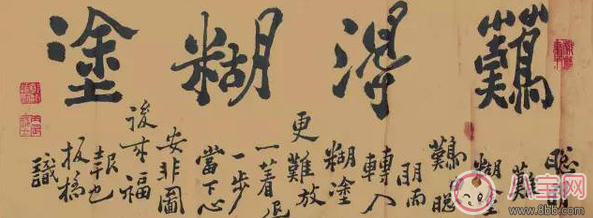 難得糊塗
聰明
難
糊塗
難聰
明而
轉入
糊塗
更難放
一着退
一步
當下心
安非圖
後來福
報也
板橋
識
八宝网
www.8bb.com